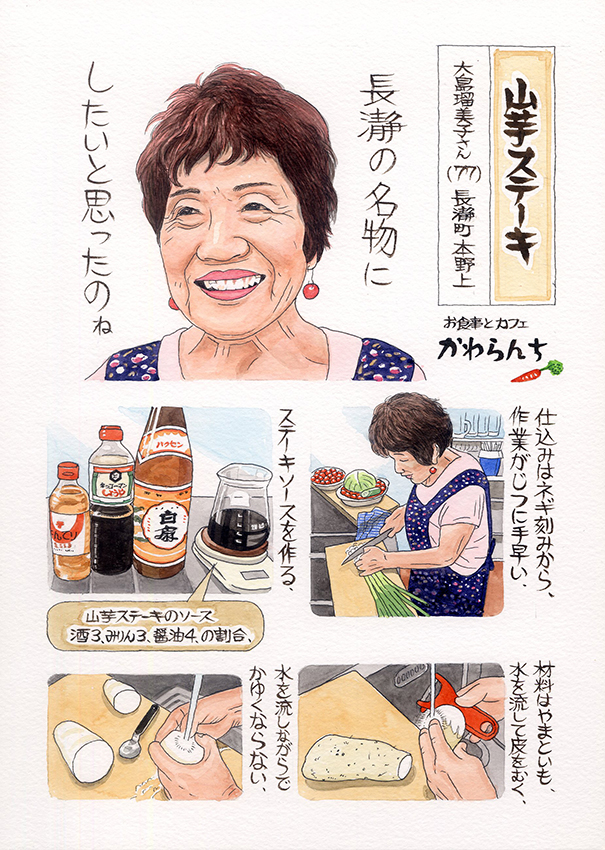 山芋ステーキ
大島瑠美子さん(77) 長瀞町本野上
お食事とカフェ
かわらんち
長瀞の名物に
したいと思ったのね
仕込みはネギ刻みから、
作業がじつに手早い.
ステーキソースを作る、
ハクセン
キッコーマン
しょうゆ
山芋ステーキのソース
酒3、みりん3、醤油4、の割合、
材料はやまといも、
水を流して皮をむく、
水を流しながらで
かゆくならない、